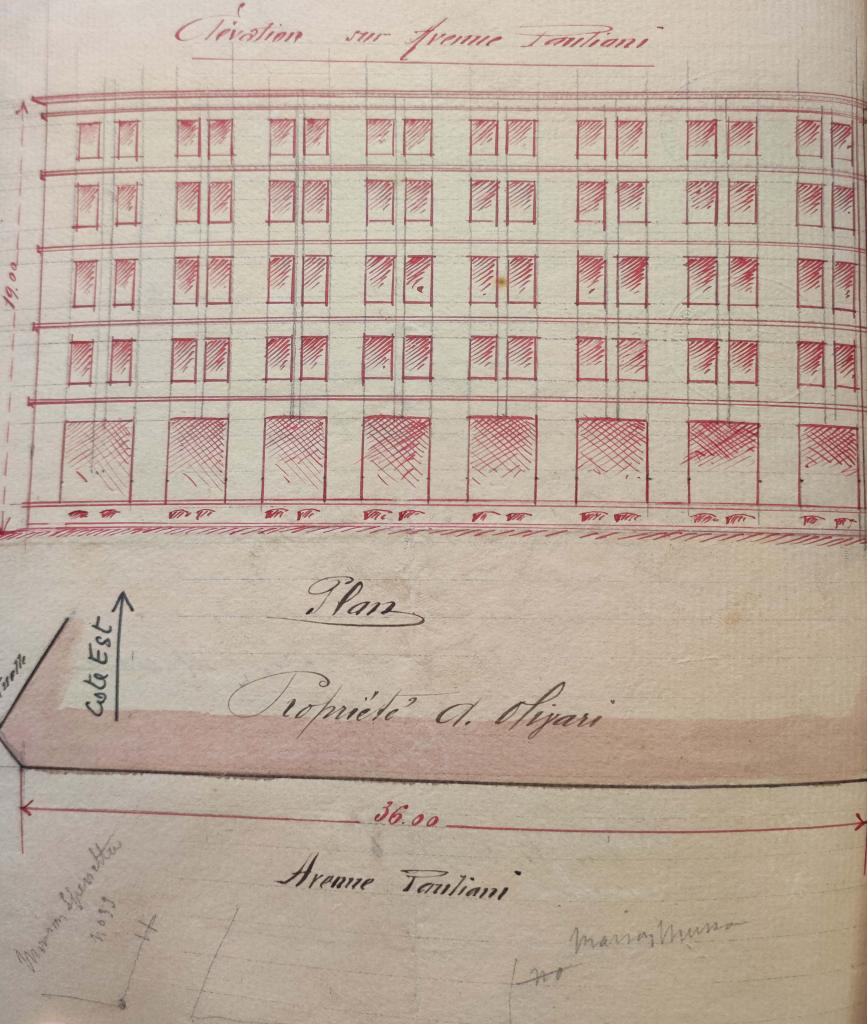 Elévation sur Avenue Pauliani
19.00
Plan
Coté Est
Propriété A. Olivari
36.00
Avenue Pauliani
Maison
no